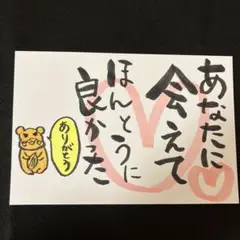 あなたに
会えて
ほんとうに
良かった
ありがとう